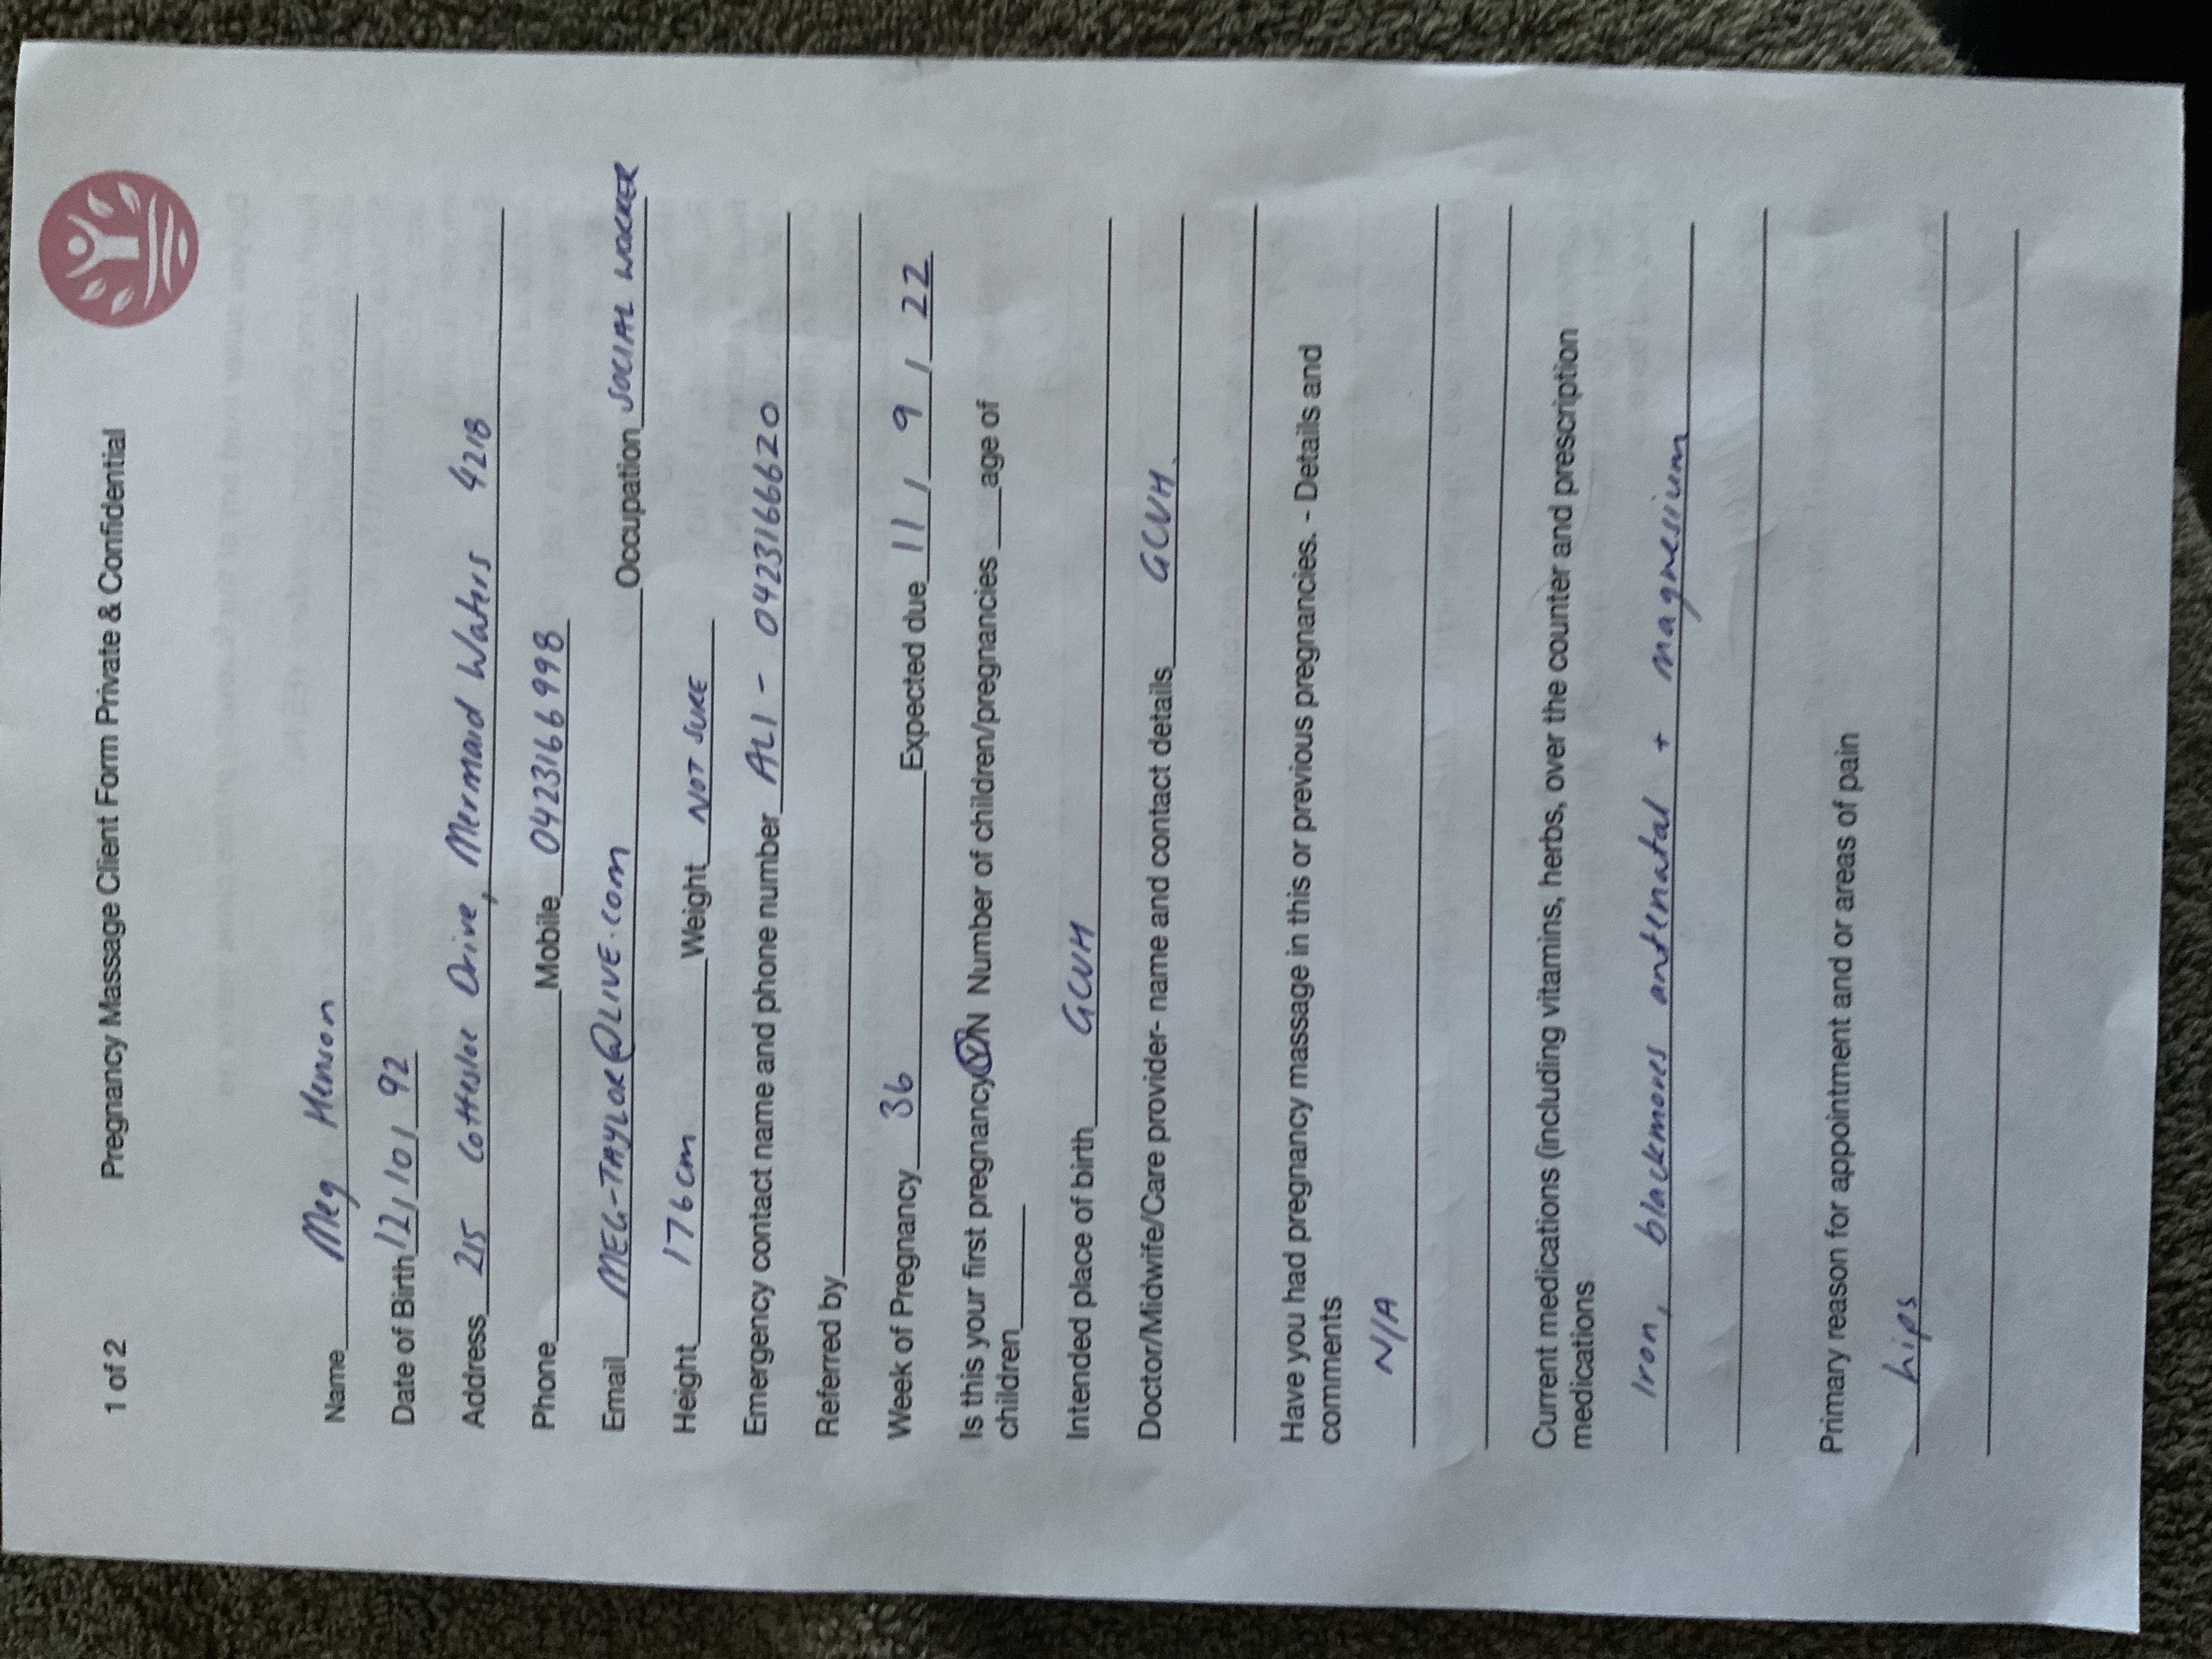 1 of 2 Pregnancy Massage Client Form Private & Confidential
Name Meg Henson
Date of Birth 12/10/92
Address 215 Cottesloe Drive, Mermaid Waters 4218
Phone Mobile 0423166998
Email MEG-TAYLOR@LIVE.COM Occupation SOCIAL WORKER
Height 176cm Weight NOT SURE
Emergency contact name and phone number ALI - 0423166620
Referred by
Week of Pregnancy 36 Expected due 11 / 9 / 22
Is this your first pregnancy Y/N Number of children/pregnancies ___age of
children
Intended place of birth GCUH
Doctor/Midwife/Care provider- name and contact details GCUH.
Have you had pregnancy massage in this or previous pregnancies. - Details and
comments
N/A
Current medications (including vitamins, herbs, over the counter and prescription
medications
Iron, blackmores antenatal + magnesium
Primary reason for appointment and or areas of pain
hips